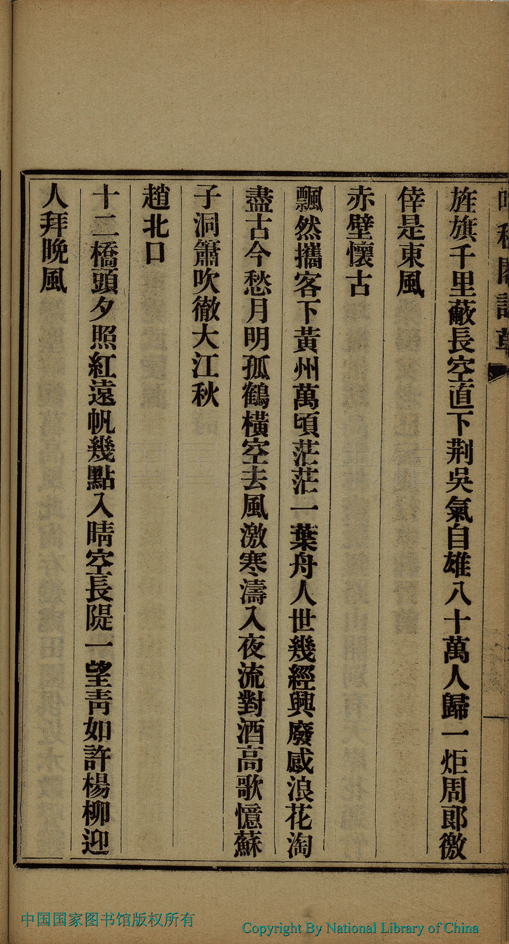 旌旗千里蔽長空直下荆吳氣自雄八十萬人歸一炬周郎徼
倖是東風
赤壁懷古
飄然攜客下黃州萬頃茫茫一葉舟人世幾經興廢感浪花淘
盡古今愁月明孤鶴橫空去風激寒濤入夜流對酒高歌憶蘇
子洞簫吹徹大江秋
趙北口
十二橋頭夕照紅遠帆幾點入晴空長隄一望靑如許楊柳迎
人拜晚風
中国国家图书馆版权所有
Copyright By National Library of China